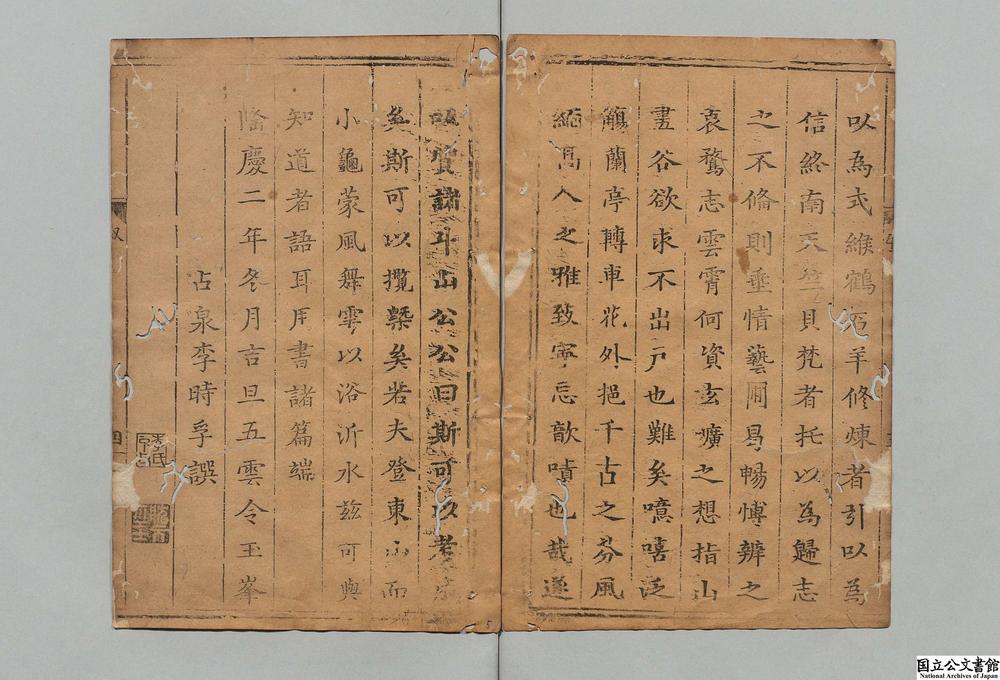 以為式維鶴石羊修煉者引以為
信終南天竺貝梵者托以為歸志
之不脩則垂情藝圃曷暢博辨之
衷騖志雲霄何資玄曠之想指山
畫谷欲求不出戶也難矣噫嘻泛
觴蘭亭轉車花外挹千古之芬風
絕高人之雅致寧忘歆嘖也哉遂
質諸斗山公公曰斯可以考
矣斯可以攬槩矣若夫登東山而
小龜蒙風舞雩以浴沂水玆可與
知道者語耳用書諸篇端
隆慶二年冬月吉旦五雲令玉峯
占泉李時孚譔
四
李氏
国立公文書館
National Archives of Japan